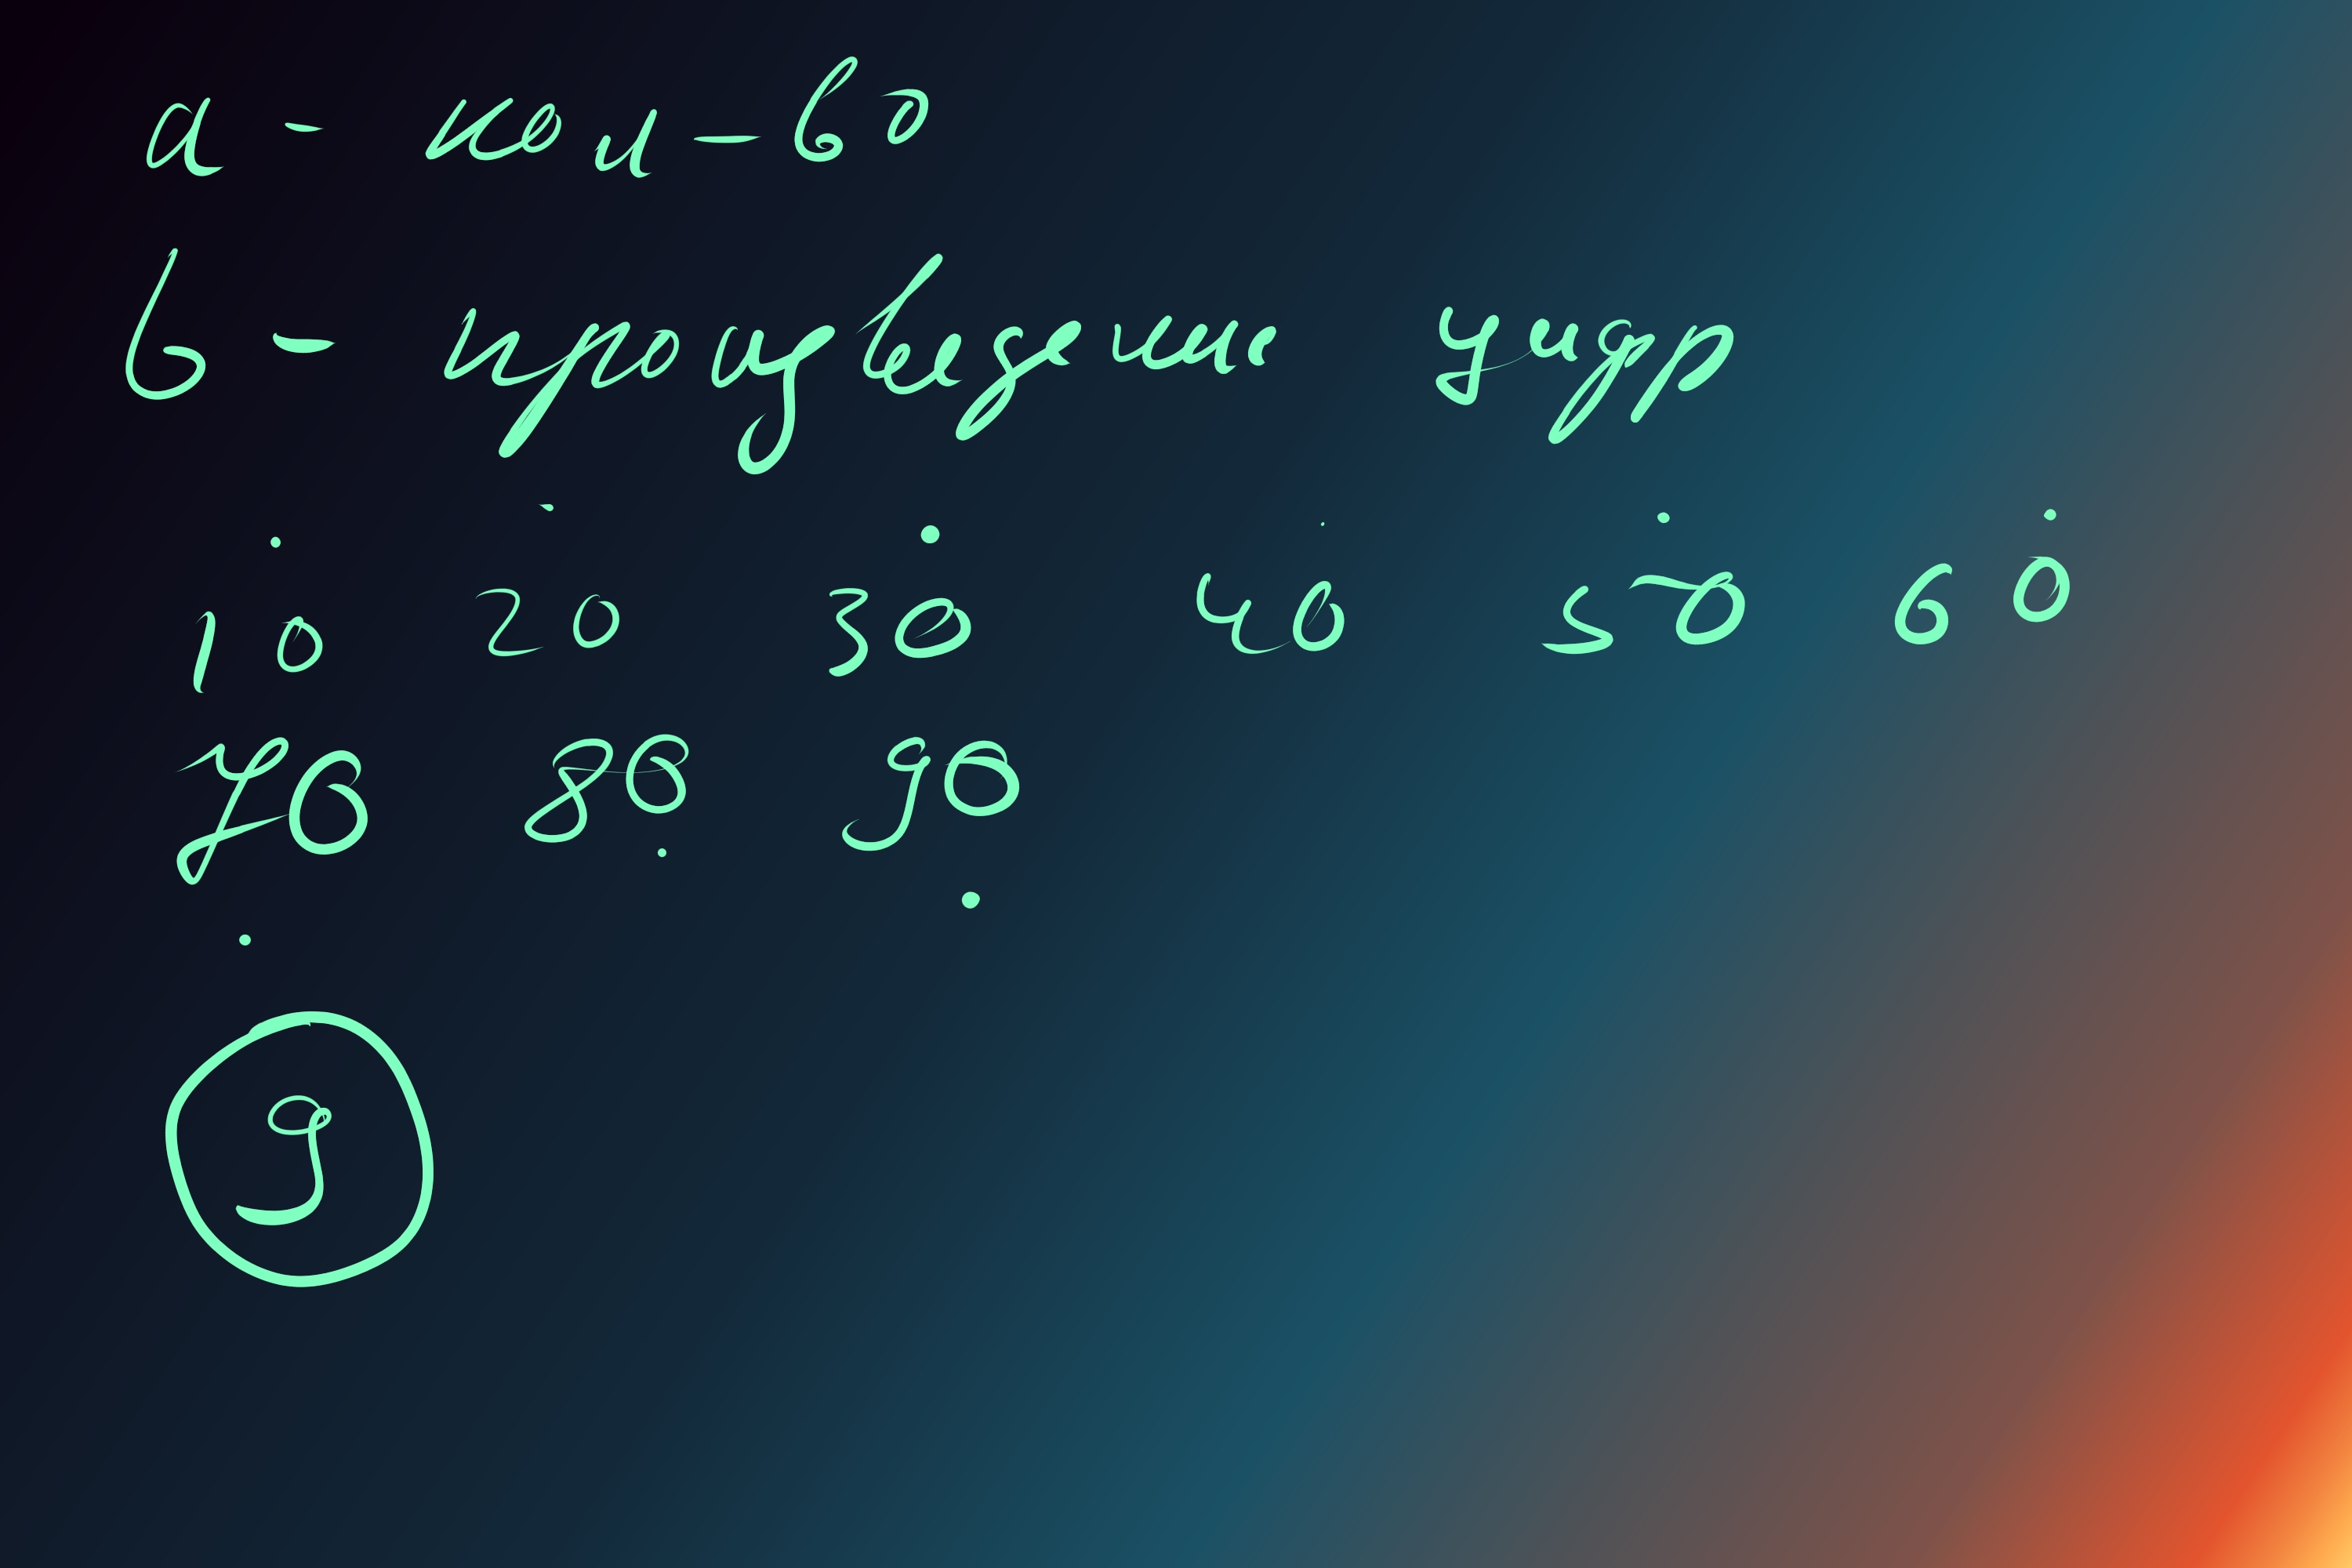 a - кол-во
b - произведение цифр
10 20 30 40 50 60
70 80 90
9